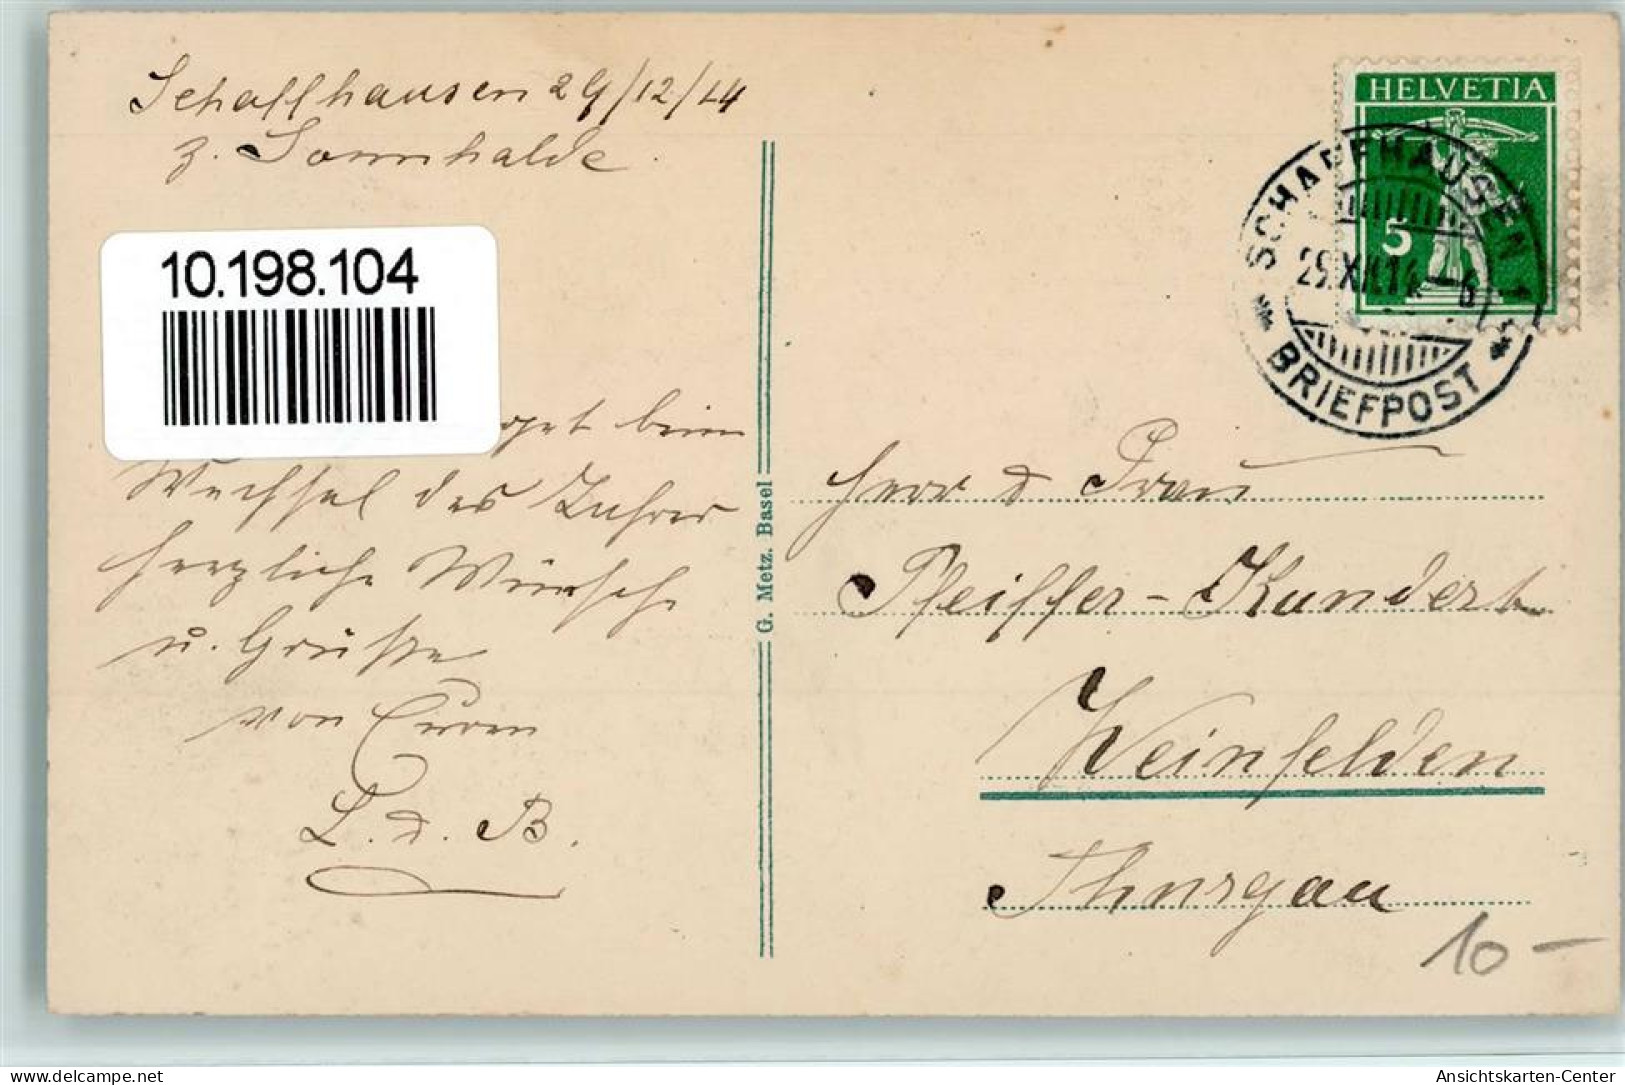 Schaffhausen 29/12/14
z. Sonnhalde.
10.198.104
beim
Wechsel des Jahres
herzliche Wünsche
u. Grüsse
von Euren
L. d. B.
G. Metz. Basel
HELVETIA
5
SCHAFFHAUSEN 1
29.XII.14 – 6
BRIEFPOST
Herr & Frau
Pfeiffer-Kundert
Weinfelden
Thurgau
10 –
delcampe.net
Ansichtskarten-Center